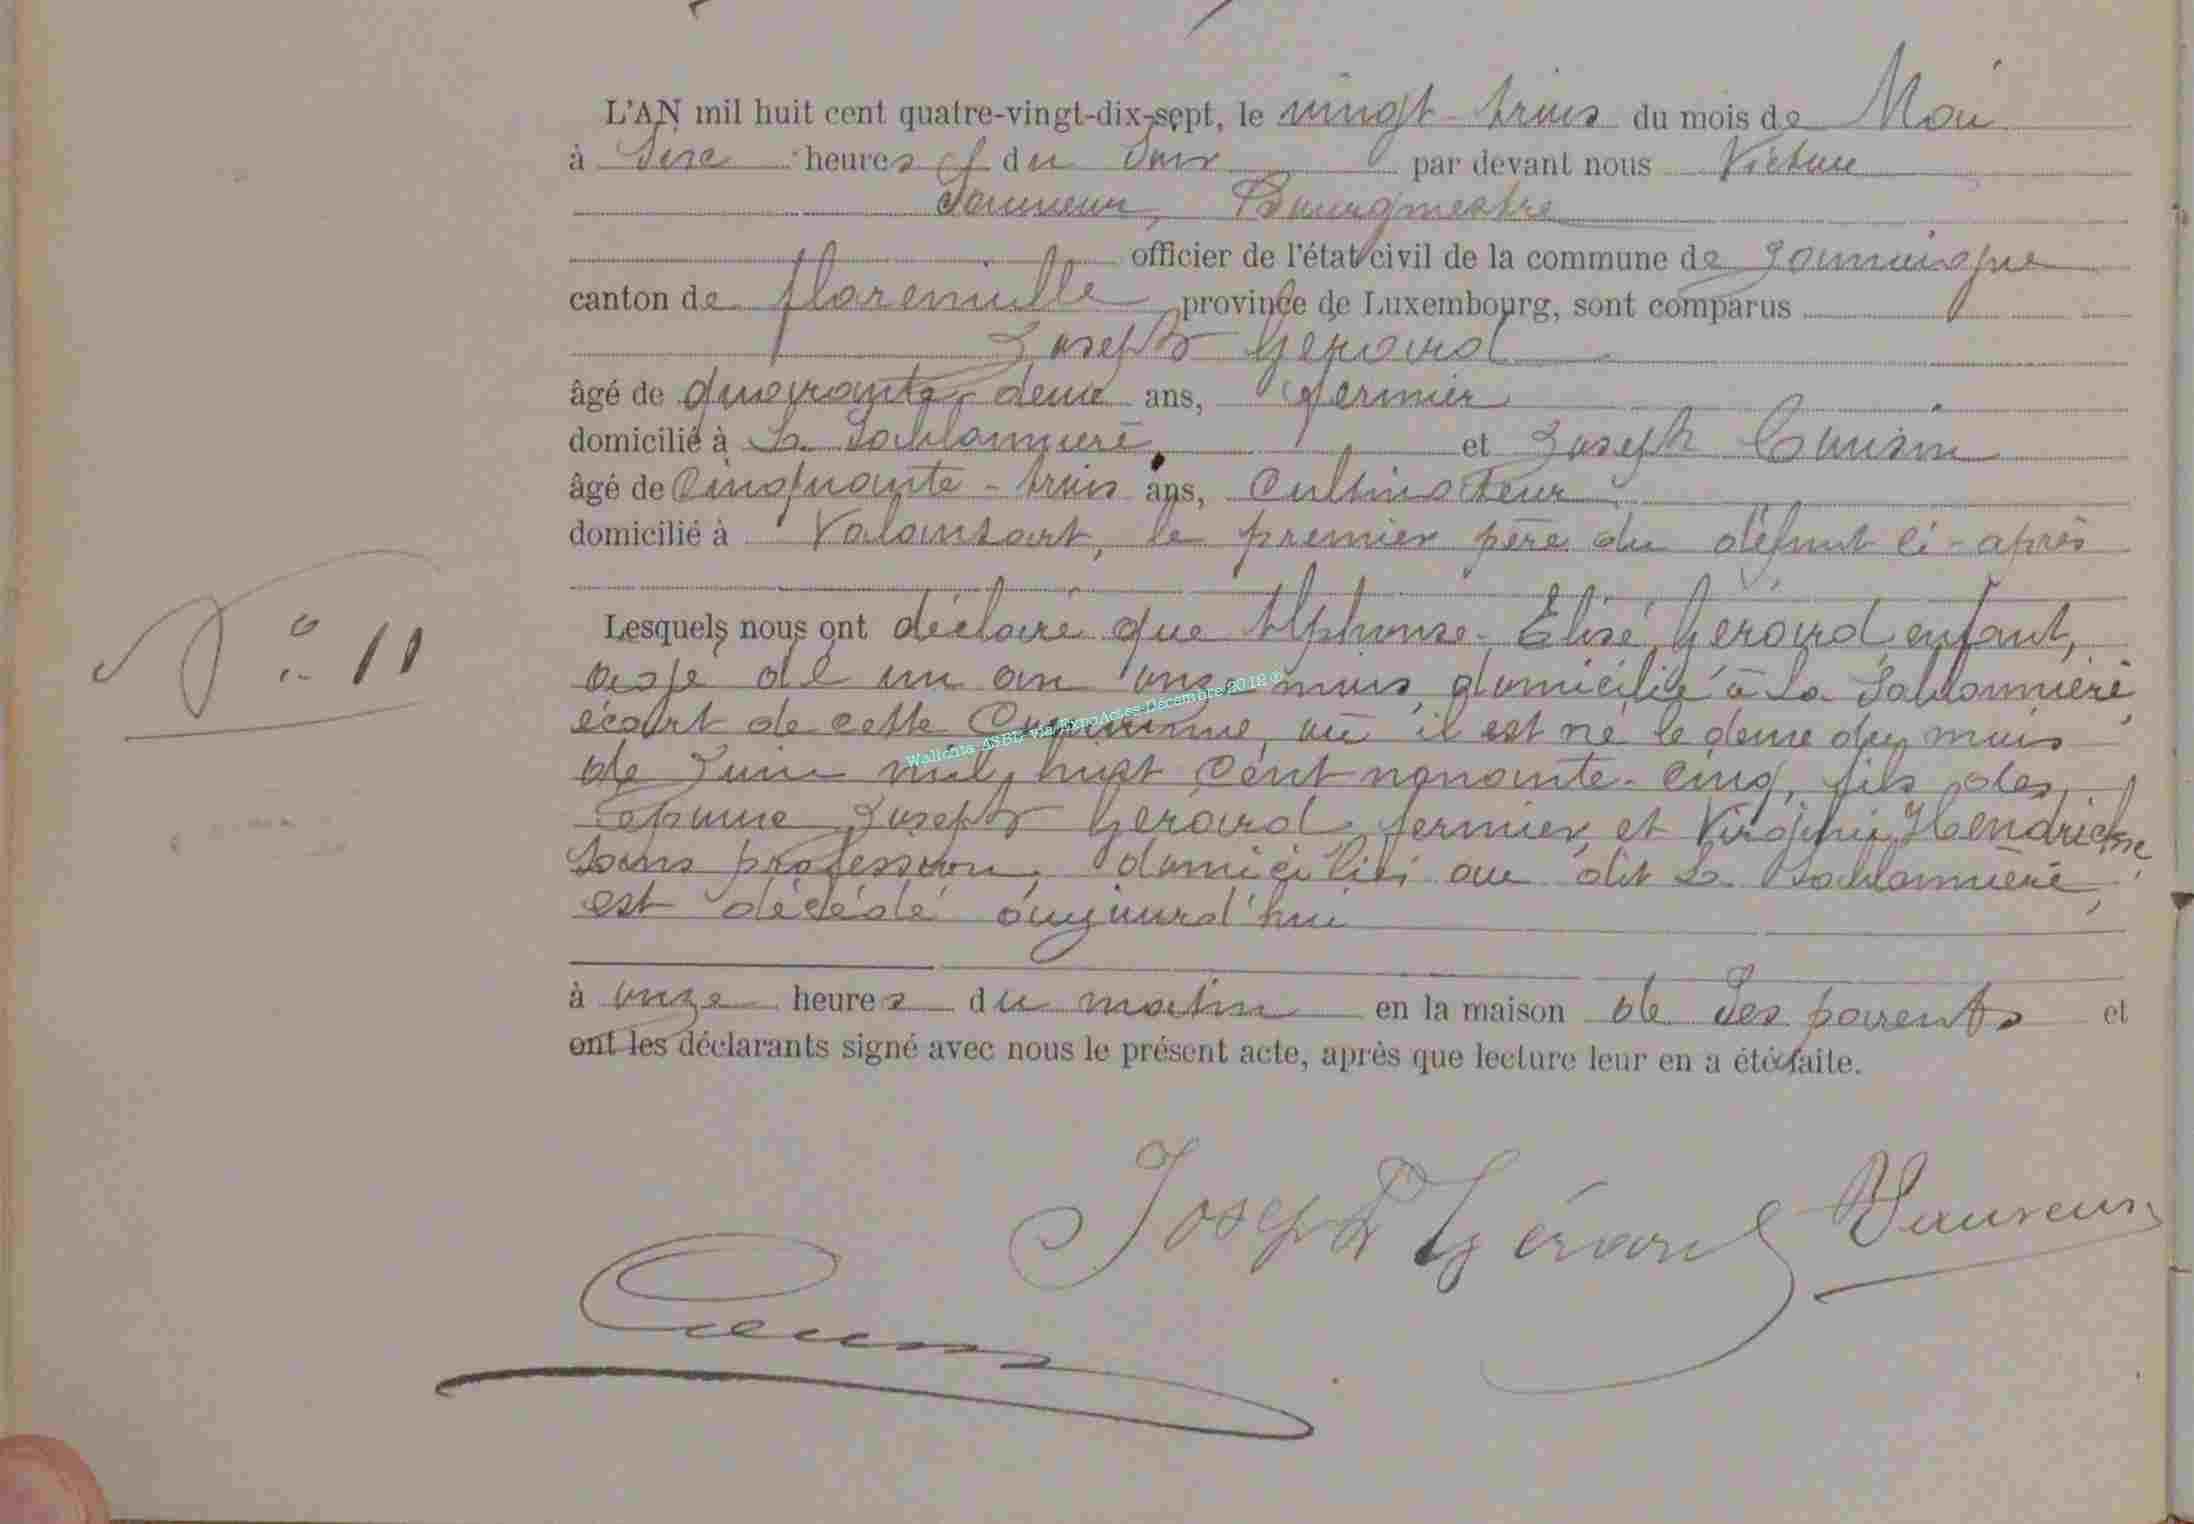 L'AN mil huit cent quatre-vingt-dix-sept, le vingt-trois du mois de Mai
à six heures du soir par devant nous Victor
Sauveur, Bourgmestre
officier de l'état civil de la commune de Jamoigne
canton de florenville province de Luxembourg, sont comparus
Joseph Gérard
âgé de quarante-deux ans, fermier
domicilié à La Sablonnière et Joseph
âgé de Cinquante-trois ans, Cultivateur
domicilié à Valansart, le premier père du défunt ci-après
Lesquels nous ont déclaré que Alphonse-Elisé Gérard, enfant,
âgé de un an onze mois, domicilié à La Sablonnière
écart de cette Commune, où il est né le deux du mois
de Juin mil huit cent nonante-cinq, fils des
époux Joseph Gérard fermier, et Virginie
sans profession, domiciliés au dit La Sablonnière,
est décédé aujourd'hui
N° 11
à onze heures du matin en la maison de ses parents et
ont les déclarants signé avec nous le présent acte, après que lecture leur en a été faite.
Wallonia ASBL via ExpoActes Décembre 2012 ©
Joseph Gérard
VSauveur